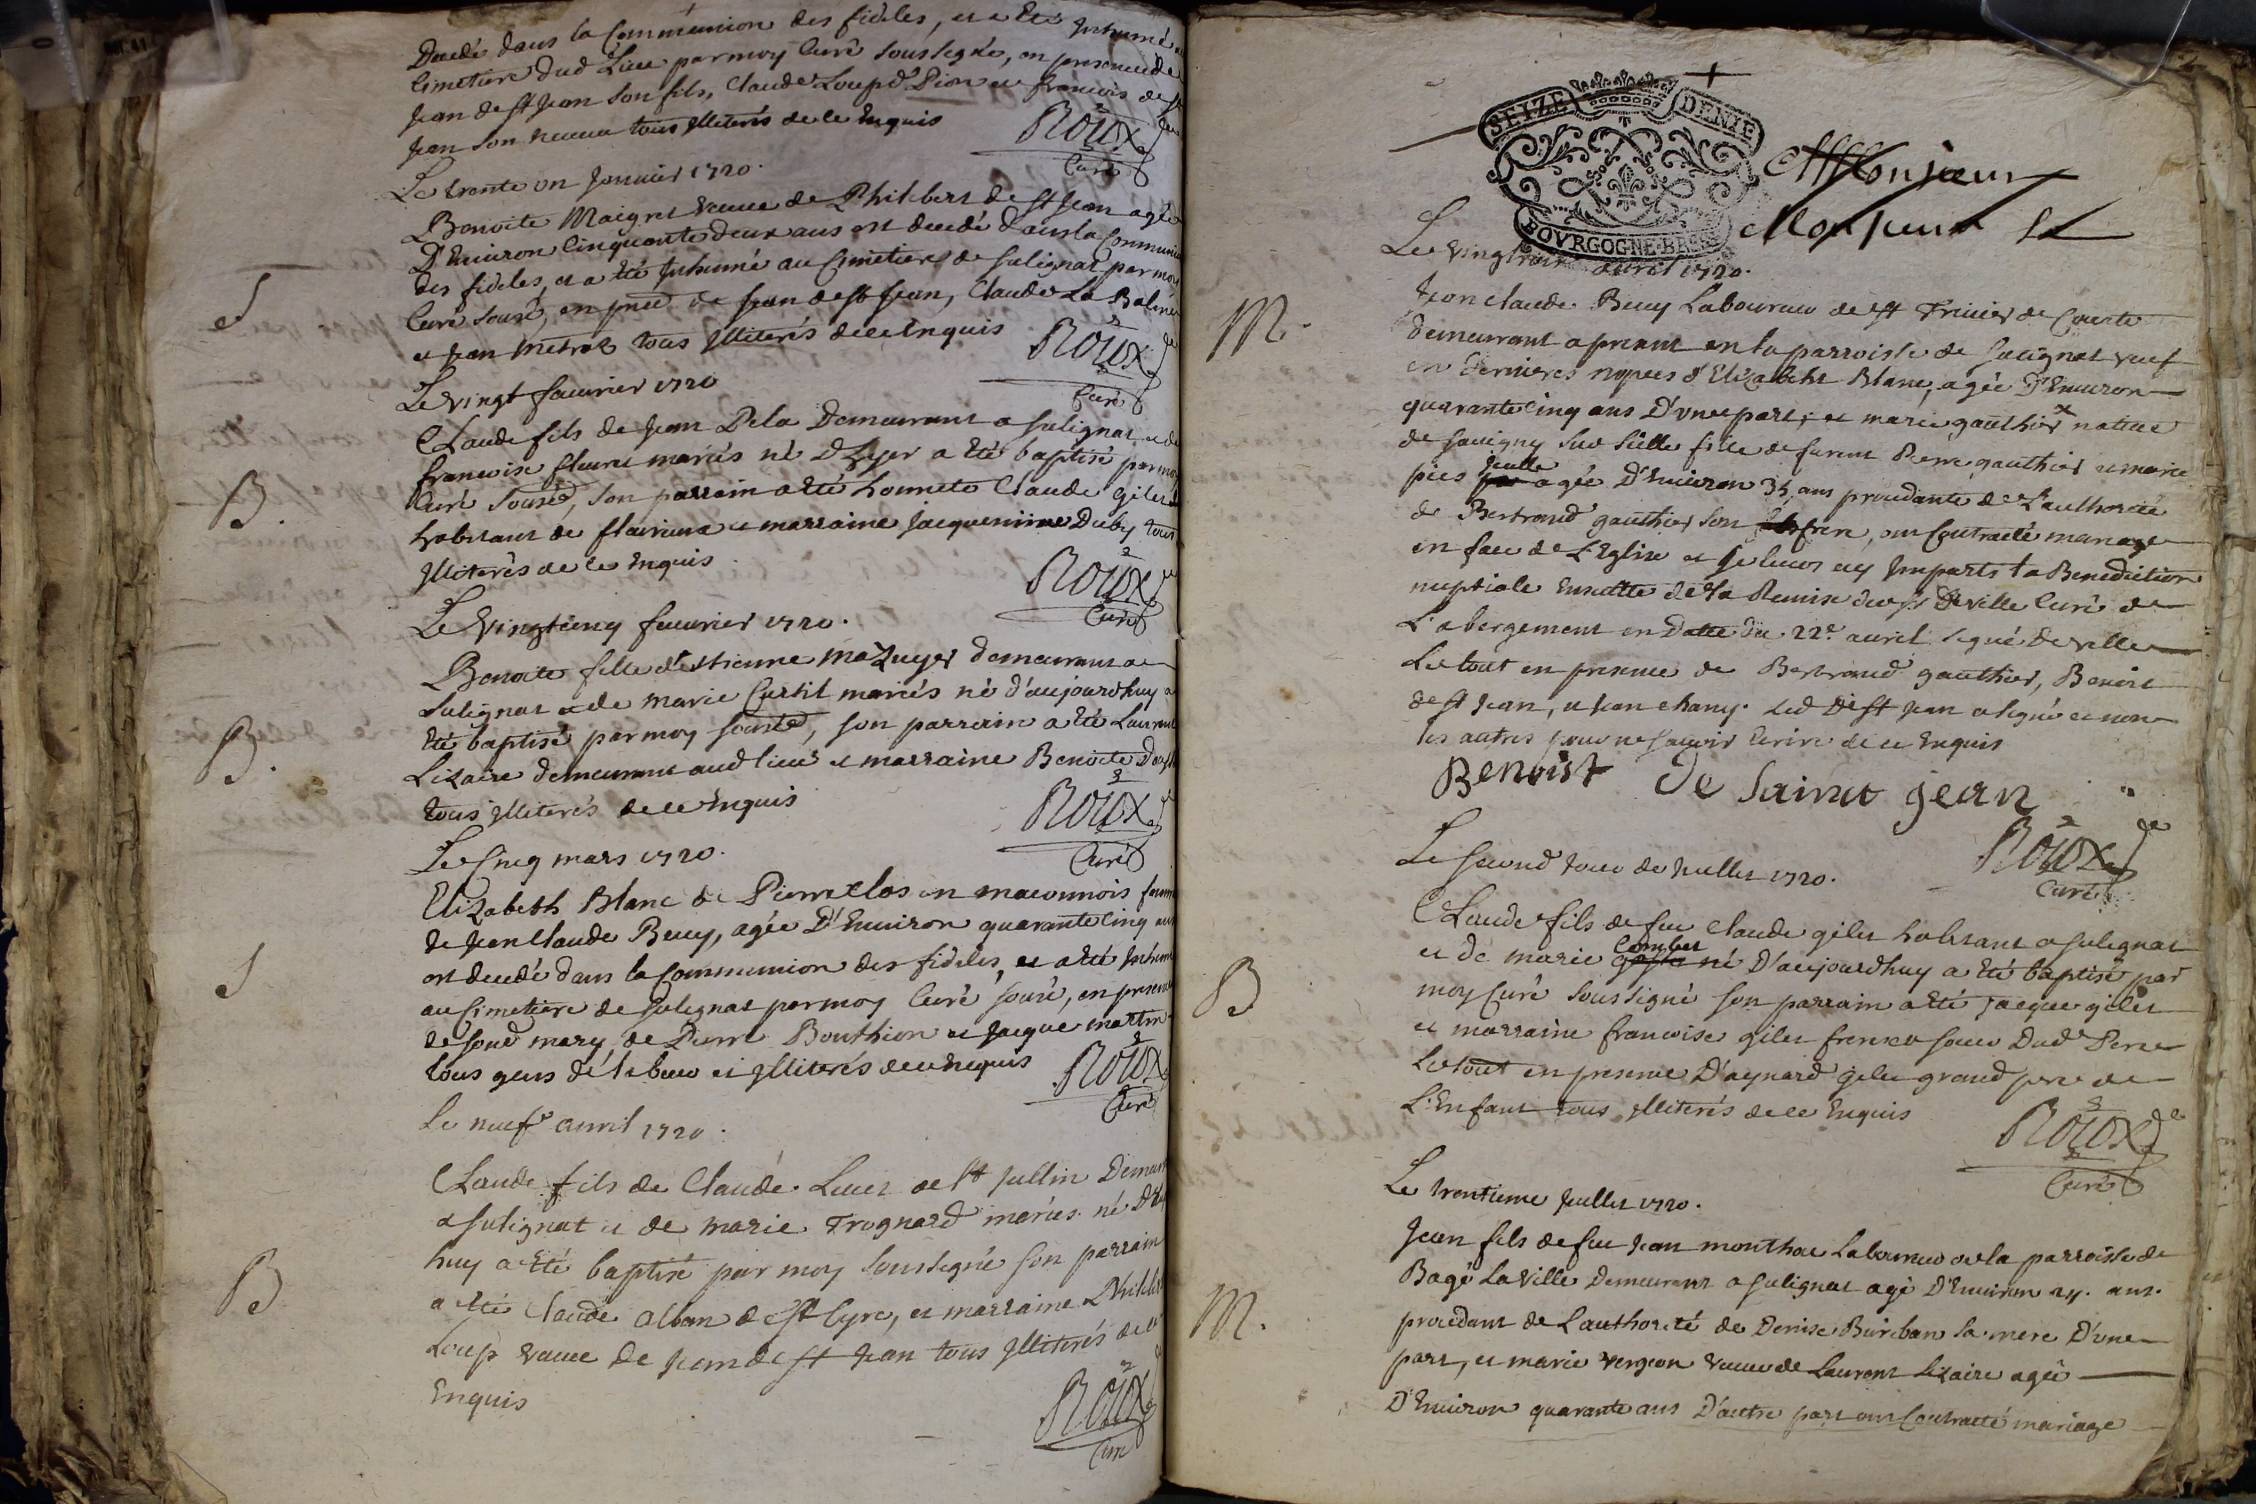 Decedé dans la Communion des fideles, et a Eté Inhumé
Cimetiere dud Lieu par moy Curé Soussigné, en presence de
Jean de st Jean Son fils, Claude Loup d' Pion et francois de st
Jean Son neveu tous Illiterés de ce Enquis
Roux
Curé
Le trente un Janvier 1720.
S
Benoite Maigret veuve de Philibert de st Jean agée
D'Environ Cinquante deux ans est decedé dans la Communion
des fideles, et a Eté Inhumé au Cimetiere de Sulignat par moy
Curé Sousé, en pnce de Jean de st Jean, Claude La Balme
et Jean Metral tous Illiterés de ce Enquis
Roux
Curé
Le vingt fauvrier 1720
B.
Claude fils de Jean Dela Demeurant a Sulignat et de
francoise fleurie mariés né D'hyer a Eté baptisé par moy
Curé Sousé, Son parrain a Eté honnete Claude gilet
habitant de et marraine Jacquemine Duby tous
Illiterés de ce Enquis
Roux
Curé
Le Vingtcinq fauvrier 1720.
B.
Benoite fille d'Estienne Mazuyer demeurant a
Sulignat et de marie Curtil mariés né d'aujourdhuy a
Eté baptisé par moy Sousé, Son parrain a Eté Laurent
Lizaire demeurant aud lieu et marraine Benoite
tous Illiterés de ce Enquis
Roux
Curé
Le Cinq mars 1720.
S
Elizabeth Blanc de Pierreclos en maconnois femme
de Jean Claude Beuy, agée D'Environ quarante Cinq ans
est decedé dans la Communion des fideles, et a Eté Inhumé
au Cimetiere de Sulignat par moy Curé Sousé, en presence
de Sond mary de Pierre Bouthion et Jacque martin
tous gens de labeur et Illiterés de ce Enquis
Roux
Curé
Le neuf avril 1720.
B
Claude fils de Claude Luiset de st Jullin Demeurant
a Sulignat et de marie Trognard mariés né D'au
huy a Eté baptisé par moy Soussigné Son parrain
a Eté Claude alban de st Cyre, et marraine Philiberte
Loup veuve de Jean de st Jean tous Illiterés de ce
Enquis
Roux
Curé
SEIZE DENIE
BOVRGOGNE BRESSE
Monsieur
Monsieur
Le vingtroix avril 1720.
M.
Jean Claude Beuy Laboureur de st Trivier de Courte
demeurant a present en la parroisse de Sulignat veuf
en dernieres nopces d'Elizabeht Blanc, agée D'Environ
quarante cinq ans D'vne part, et marie gauthier native
de Savigny Sur Seille fille de furent Pierre gauthier et marie
pies fille agée D'Environ 35 ans procedante de L'authorité
de Bertrand gauthier Son frere, ont Contracté mariage
en face de L'Eglise et Je leur ay Imparti la Benediction
nuptiale Ensuitte de la Remise du sr Deville Curé de
L'abergement en Datte du 22e avril signé Deville
Le tout en presence de Bertrand gauthier, Benoist
de st Jean, et Jean chany. Led De st Jean a Signé et non
les autres pour ne Savoir Ecrire de ce Enquis
Benoist de Sainct jean
Roux
Curé
Le Second Jour de Juillet 1720.
B
Claude fils de feu Claude gilet habitant a Sulignat
et de marie Combet né D'aujourdhuy a Eté baptisé par
moy Curé Soussigné Son parrain a Eté Jacque gilet
et marraine francoise gilet frere et Soeur Dud Pere
Le tout en presence D'aynard gilet grand pere de
L'Enfant tous Illiterés de ce Enquis
Roux
Curé
Le trentieme Juillet 1720.
M.
Jean fils de feu Jean monthou Laboureur de la parroisse de
Bagé La Ville Demeurant a Sulignat agé D'Environ 24. ans.
procedant de L'authorité de Denise Buirban Sa mere D'vne
part, et marie vergeon veuve de Laurent Lizaire agée
D'Environ quarante ans D'autre part ont Contracté mariage